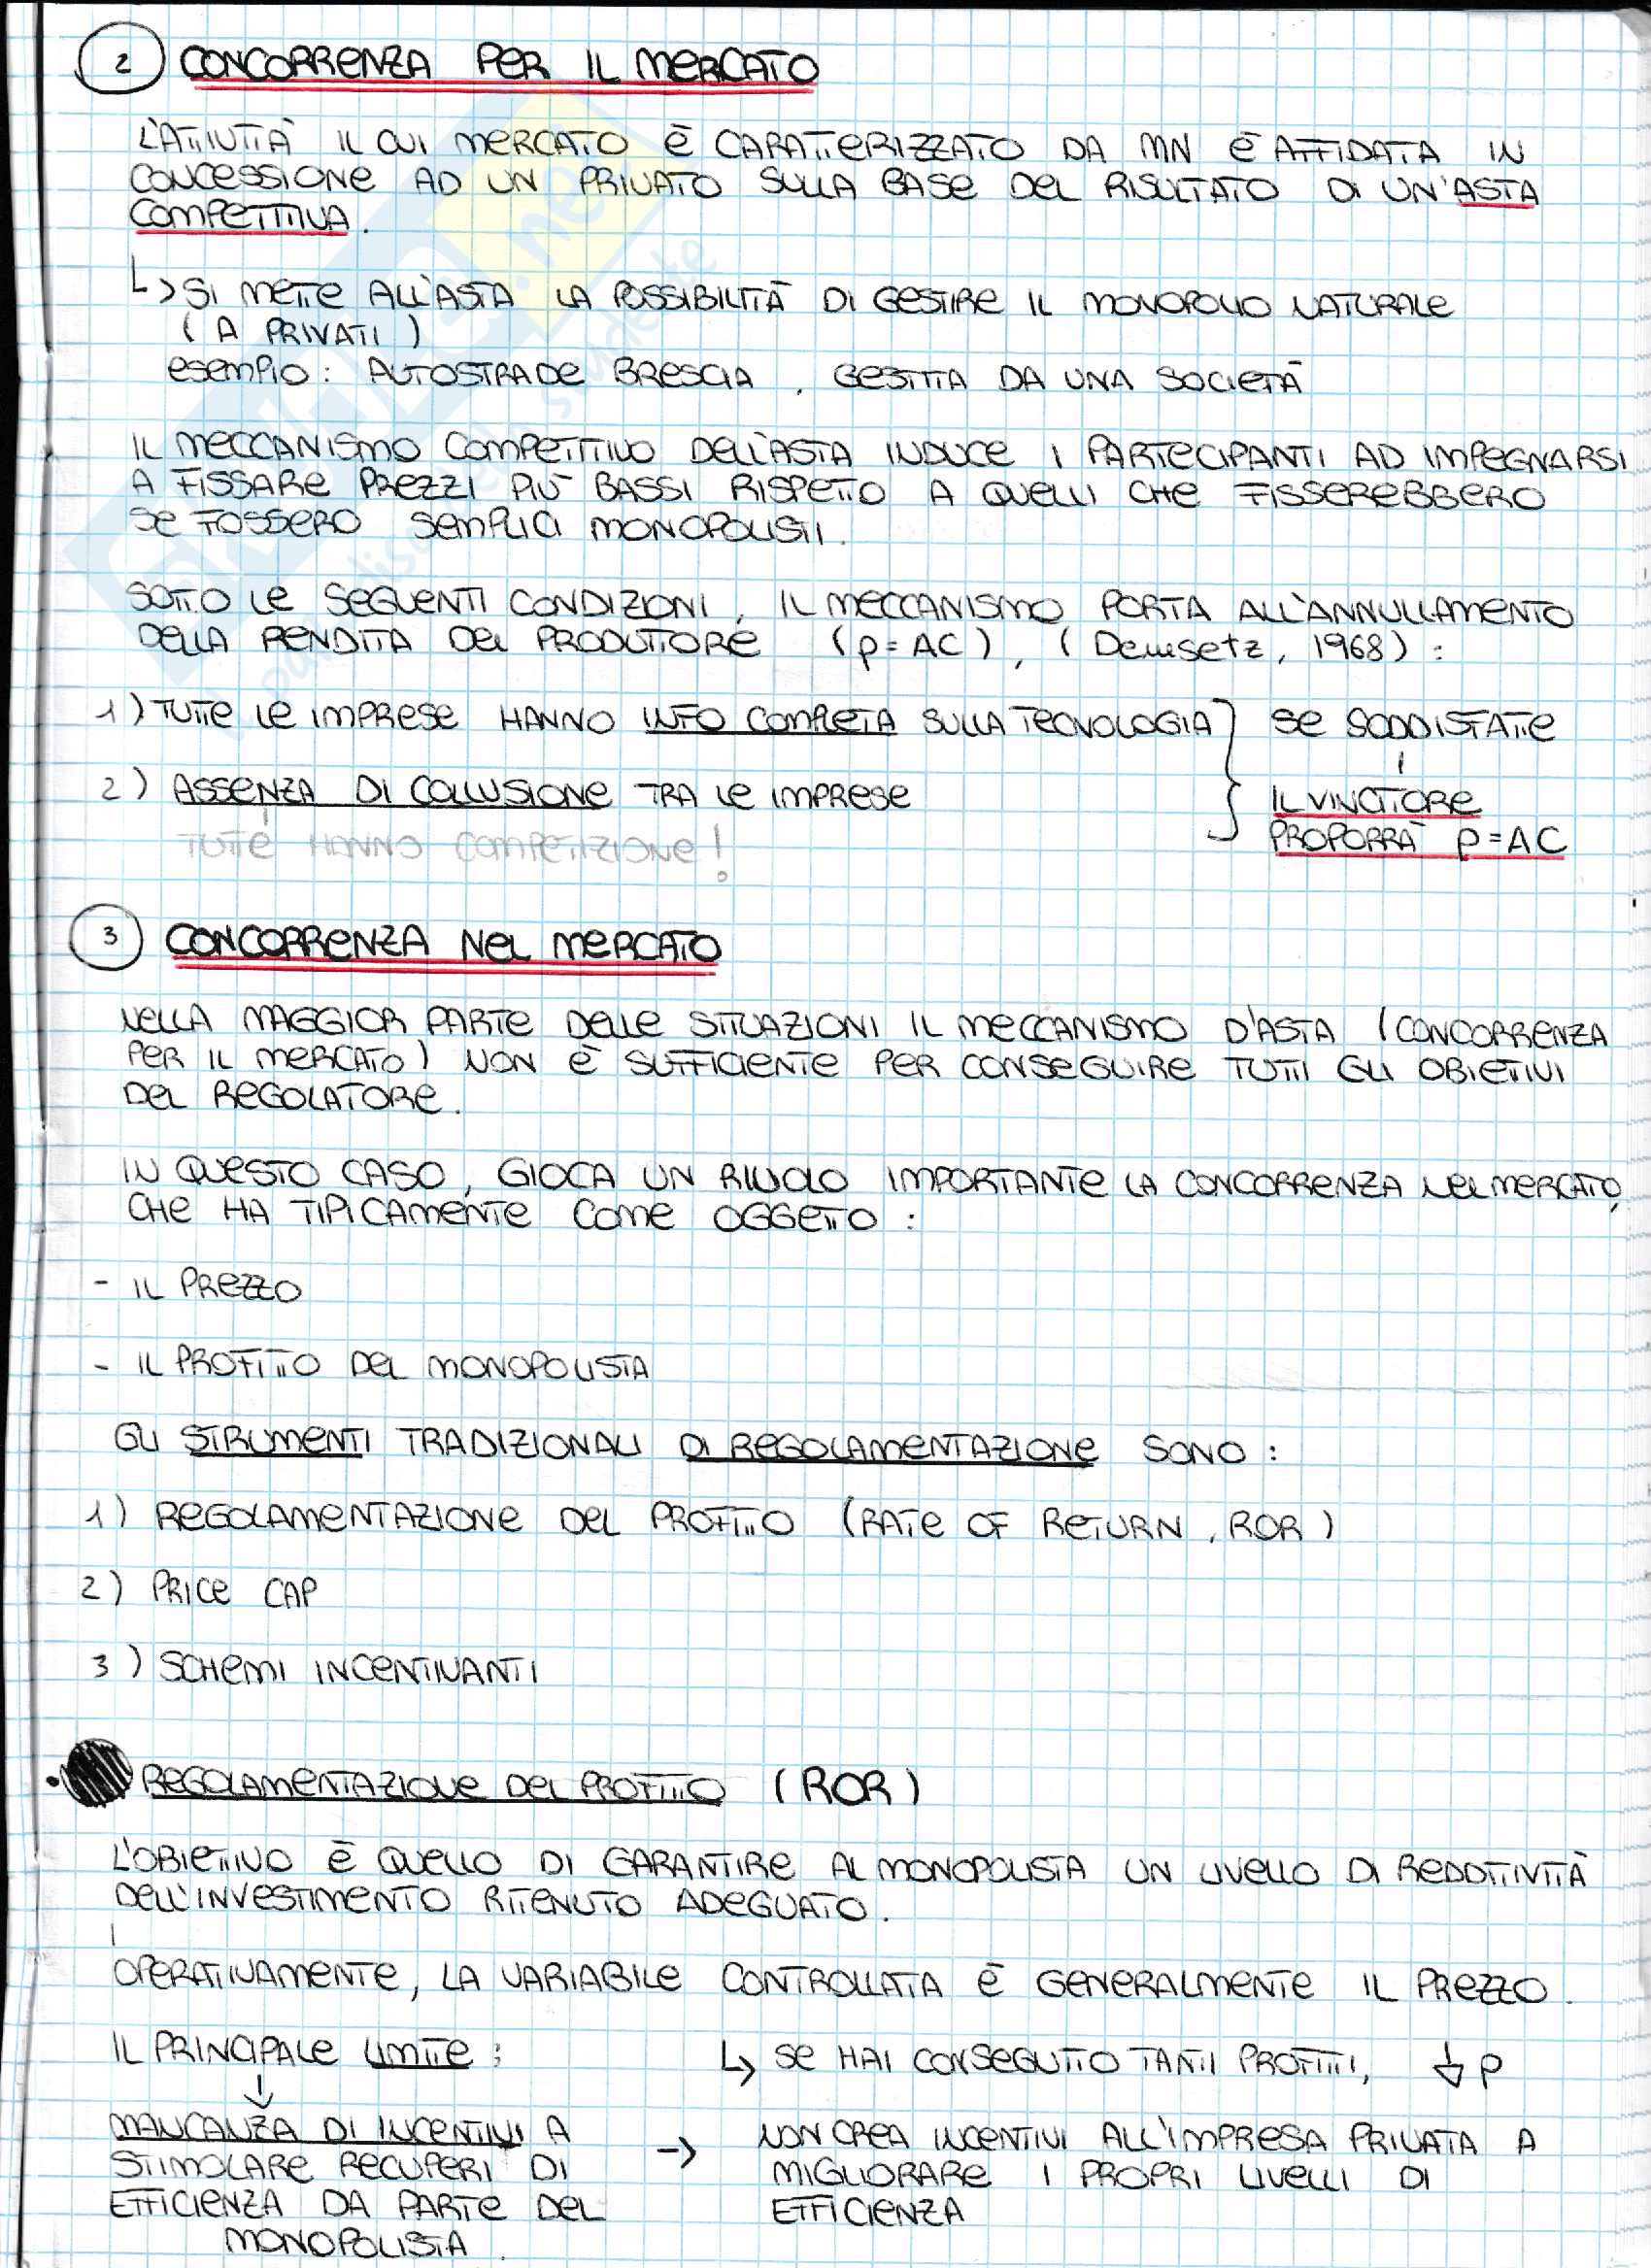 2 CONCORRENZA PER IL MERCATO
L'ATTIVITÀ IL CUI MERCATO È CARATTERIZZATO DA MN È AFFIDATA IN
CONCESSIONE AD UN PRIVATO SULLA BASE DEL RISULTATO DI UN'ASTA
COMPETITIVA.
↳ SI METTE ALL'ASTA LA POSSIBILITÀ DI GESTIRE IL MONOPOLIO NATURALE
(A PRIVATI)
esempio: AUTOSTRADE BRESCIA, GESTITA DA UNA SOCIETÀ
IL MECCANISMO COMPETITIVO DELL'ASTA INDUCE I PARTECIPANTI AD IMPEGNARSI
A FISSARE PREZZI PIÙ BASSI RISPETTO A QUELLI CHE FISSEREBBERO
SE FOSSERO SEMPLICI MONOPOLISTI.
SOTTO LE SEGUENTI CONDIZIONI, IL MECCANISMO PORTA ALL'ANNULLAMENTO
DELLA RENDITA DEL PRODUTTORE (p=AC), (Demsetz, 1968):
1) TUTTE LE IMPRESE HANNO INFO COMPLETA SULLA TECNOLOGIA
2) ASSENZA DI COLLUSIONE TRA LE IMPRESE
TUTTE HANNO COMPETIZIONE!
SE SODDISFATTE
IL VINCITORE
PROPORRÀ p=AC
3 CONCORRENZA NEL MERCATO
NELLA MAGGIOR PARTE DELLE SITUAZIONI IL MECCANISMO D'ASTA (CONCORRENZA
PER IL MERCATO) NON È SUFFICIENTE PER CONSEGUIRE TUTTI GLI OBIETTIVI
DEL REGOLATORE.
IN QUESTO CASO, GIOCA UN RUOLO IMPORTANTE LA CONCORRENZA NEL MERCATO,
CHE HA TIPICAMENTE COME OGGETTO:
- IL PREZZO
- IL PROFITTO DEL MONOPOLISTA
GLI STRUMENTI TRADIZIONALI DI REGOLAMENTAZIONE SONO:
1) REGOLAMENTAZIONE DEL PROFITTO (RATE OF RETURN, ROR)
2) PRICE CAP
3) SCHEMI INCENTIVANTI
• REGOLAMENTAZIONE DEL PROFITTO (ROR)
L'OBIETTIVO È QUELLO DI GARANTIRE AL MONOPOLISTA UN LIVELLO DI REDDITIVITÀ
DELL'INVESTIMENTO RITENUTO ADEGUATO.
OPERATIVAMENTE, LA VARIABILE CONTROLLATA È GENERALMENTE IL PREZZO.
↳ SE HAI CONSEGUITO TANTI PROFITTI, ↓ p
IL PRINCIPALE LIMITE:
↓
MANCANZA DI INCENTIVI A
STIMOLARE RECUPERI DI
EFFICIENZA DA PARTE DEL
MONOPOLISTA.
→ NON CREA INCENTIVI ALL'IMPRESA PRIVATA A
MIGLIORARE I PROPRI LIVELLI DI
EFFICIENZA